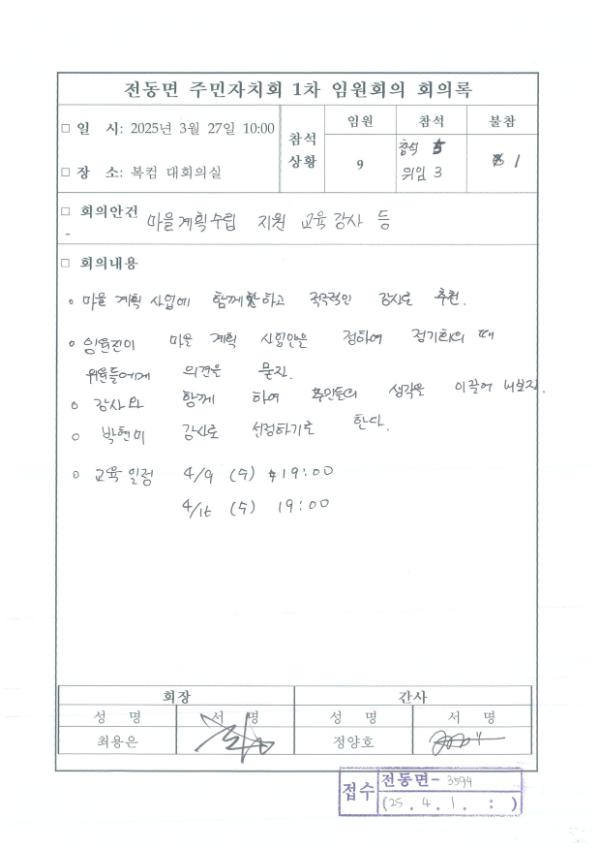 전동면 주민자치회 1차 임원회의 회의록
□ 일 시: 2025년 3월 27일 10:00
□ 장 소: 복컴 대회의실
참석상황
임원 참석 불참
9 참석 5 위임 3 1
□ 회의안건 마을계획수립 지원 교육강사 등
-
□ 회의내용
◦ 마을 계획 사업에 함께 하고 적극적인 강사로 추천.
◦ 임원진이 마을 계획 사업안을 정하여 정기회의 때
위원들에게 의견을 묻자.
◦ 강사와 함께 하여 주민들의 생각을 이끌어 내보자.
◦ 박현미 강사로 선정하기로 한다.
◦ 교육일정 4/9 (수) 19:00
4/16 (수) 19:00
회장 간사
성 명 서 명 성 명 서 명
최용은 정양호
접수 전동면- 3594
(25. 4. 1. : )